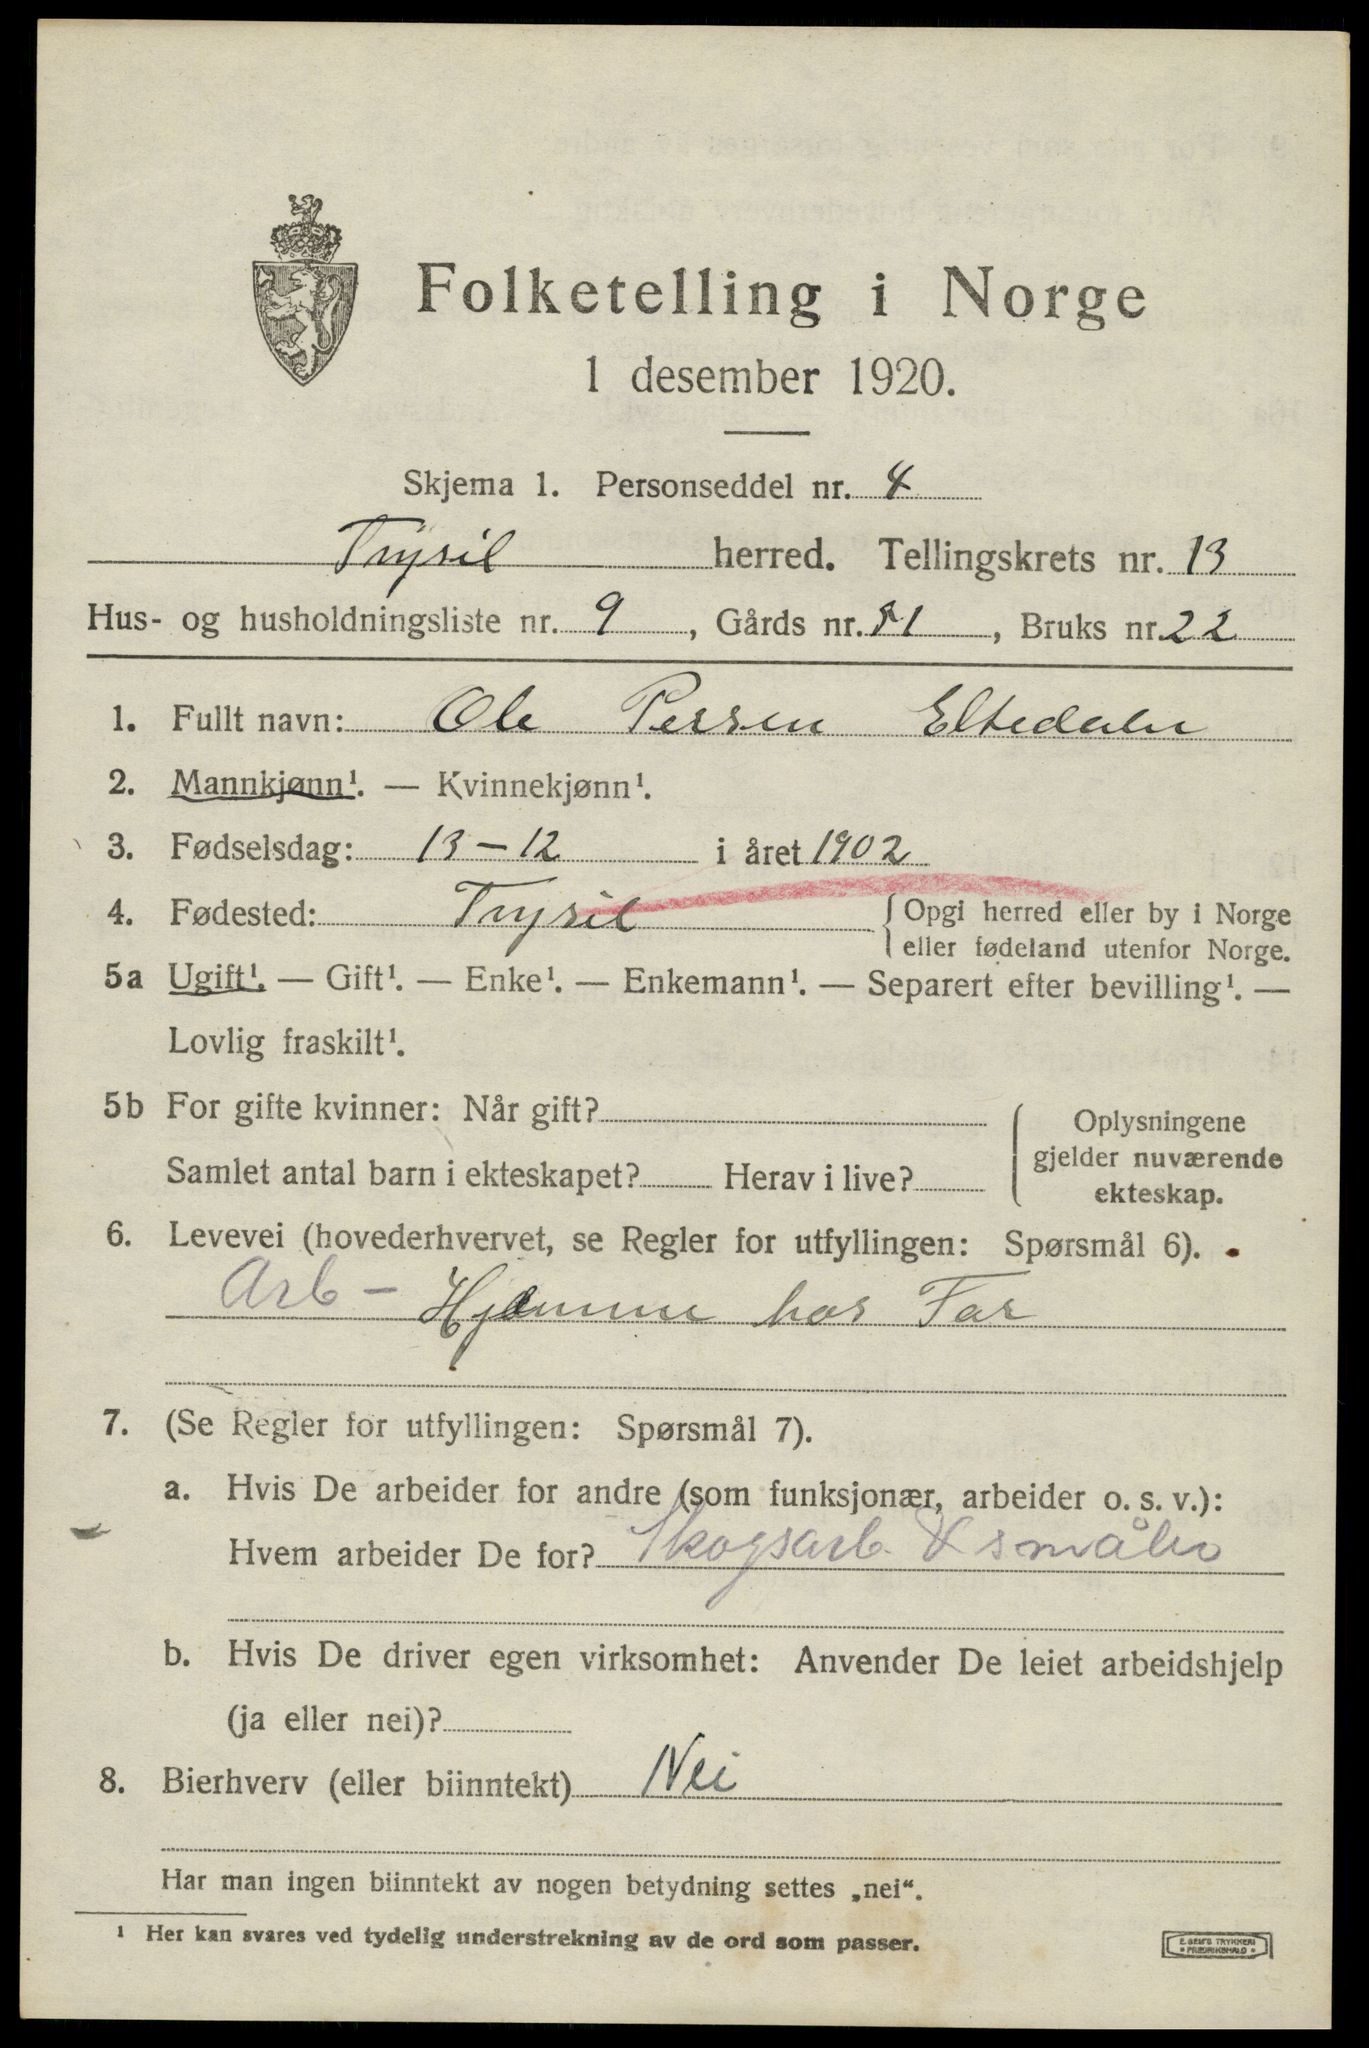 Folketelling i Norge
1 desember 1920.
Skjema 1. Personseddel nr. 4
Trysil herred. Tellingskrets nr. 13
Hus- og husholdningsliste nr. 9, Gårds nr. 51, Bruks nr. 22
1. Fullt navn: Ole Persen Eltedalen
2. Mannkjønn¹. — Kvinnekjønn¹.
3. Fødselsdag: 13–12 i året 1902
4. Fødested: Trysil { Opgi herred eller by i Norge
eller fødeland utenfor Norge.
5a Ugift¹. — Gift¹. — Enke¹. — Enkemann¹. — Separert efter bevilling¹. —
Lovlig fraskilt¹.
5b For gifte kvinner: Når gift?
Samlet antal barn i ekteskapet? Herav i live?
Oplysningene
gjelder nuværende
ekteskap.
6. Levevei (hovederhvervet, se Regler for utfyllingen: Spørsmål 6).
Arb – Hjemme hos Far
7. (Se Regler for utfyllingen: Spørsmål 7).
a. Hvis De arbeider for andre (som funksjonær, arbeider o. s. v.):
Hvem arbeider De for? Skogsarb. &
b. Hvis De driver egen virksomhet: Anvender De leiet arbeidshjelp
(ja eller nei)?
8. Bierhverv (eller biinntekt) Nei
Har man ingen biinntekt av nogen betydning settes „nei“.
¹ Her kan svares ved tydelig understrekning av de ord som passer.
E. SEM'S TRYKKERI
* FREDRIKSHALD *